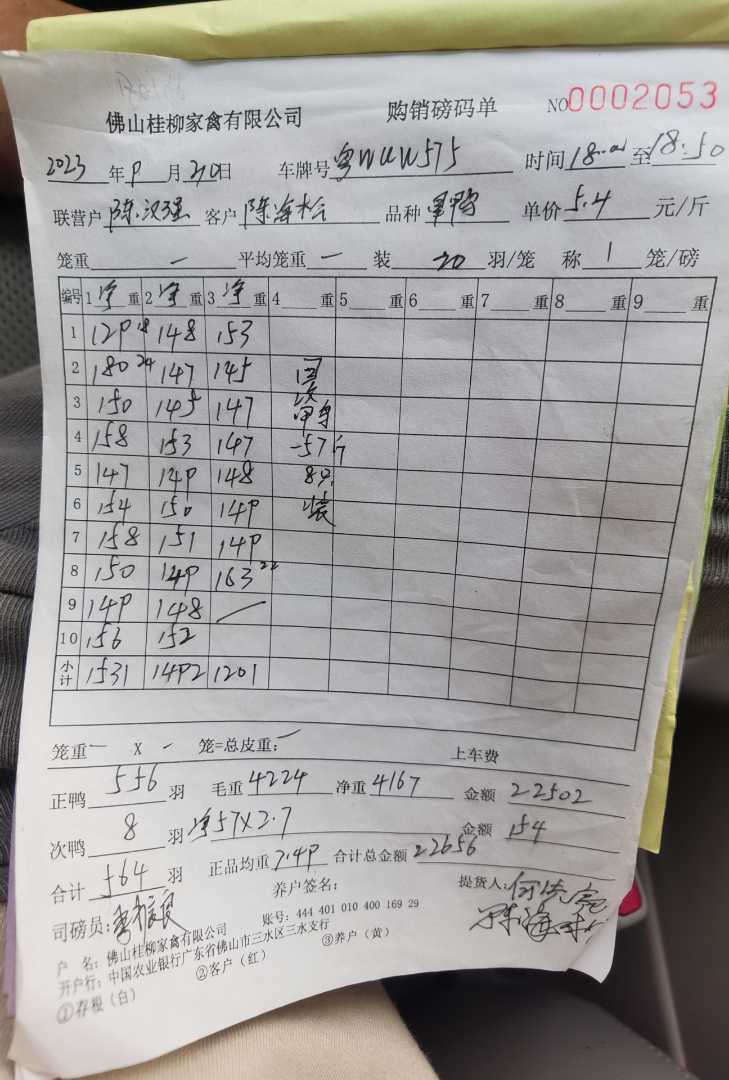 佛山桂柳家禽有限公司 购销磅码单 NO0002053
2023年9月20日 车牌号粤WUW575 时间18:00至18:50
联营户陈汉强 客户陈海松 品种 单价5.4元/斤
笼重一 平均笼重一 装20羽/笼 称1笼/磅
编号 1净重 2净重 3净重 4重 5重 6重 7重 8重 9重
1 129 18 148 153
2 180 24 147 145 回
3 150 145 147 次
4 158 153 147 -57斤
5 147 149 148 8只
6 154 150 149 装
7 158 151 149
8 150 149 163 22
9 149 148 /
10 156 152
小计 1531 1492 1201
笼重一X一笼=总皮重:一 上车费
正鸭556羽 毛重4224 净重4167 金额22502
次鸭8羽 净57X2.7 金额154
合计564羽 正品均重7.49 合计总金额22656
司磅员: 养户签名: 提货人:
户 名: 佛山桂柳家禽有限公司 账号: 444 401 010 400 169 29
开户行: 中国农业银行广东省佛山市三水区三水支行
①存根(白) ②客户(红) ③养户(黄)